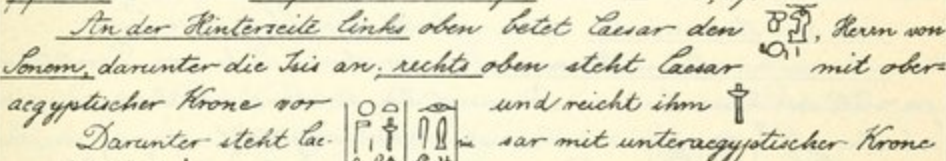 An der Hinterseite links oben betet Caesar den , Herrn von
Senem, darunter die Isis an; rechts oben steht Caesar mit ober=
aegyptischer Krone vor und reicht ihm
Darunter steht Cae- sar mit unteraegyptischer Krone